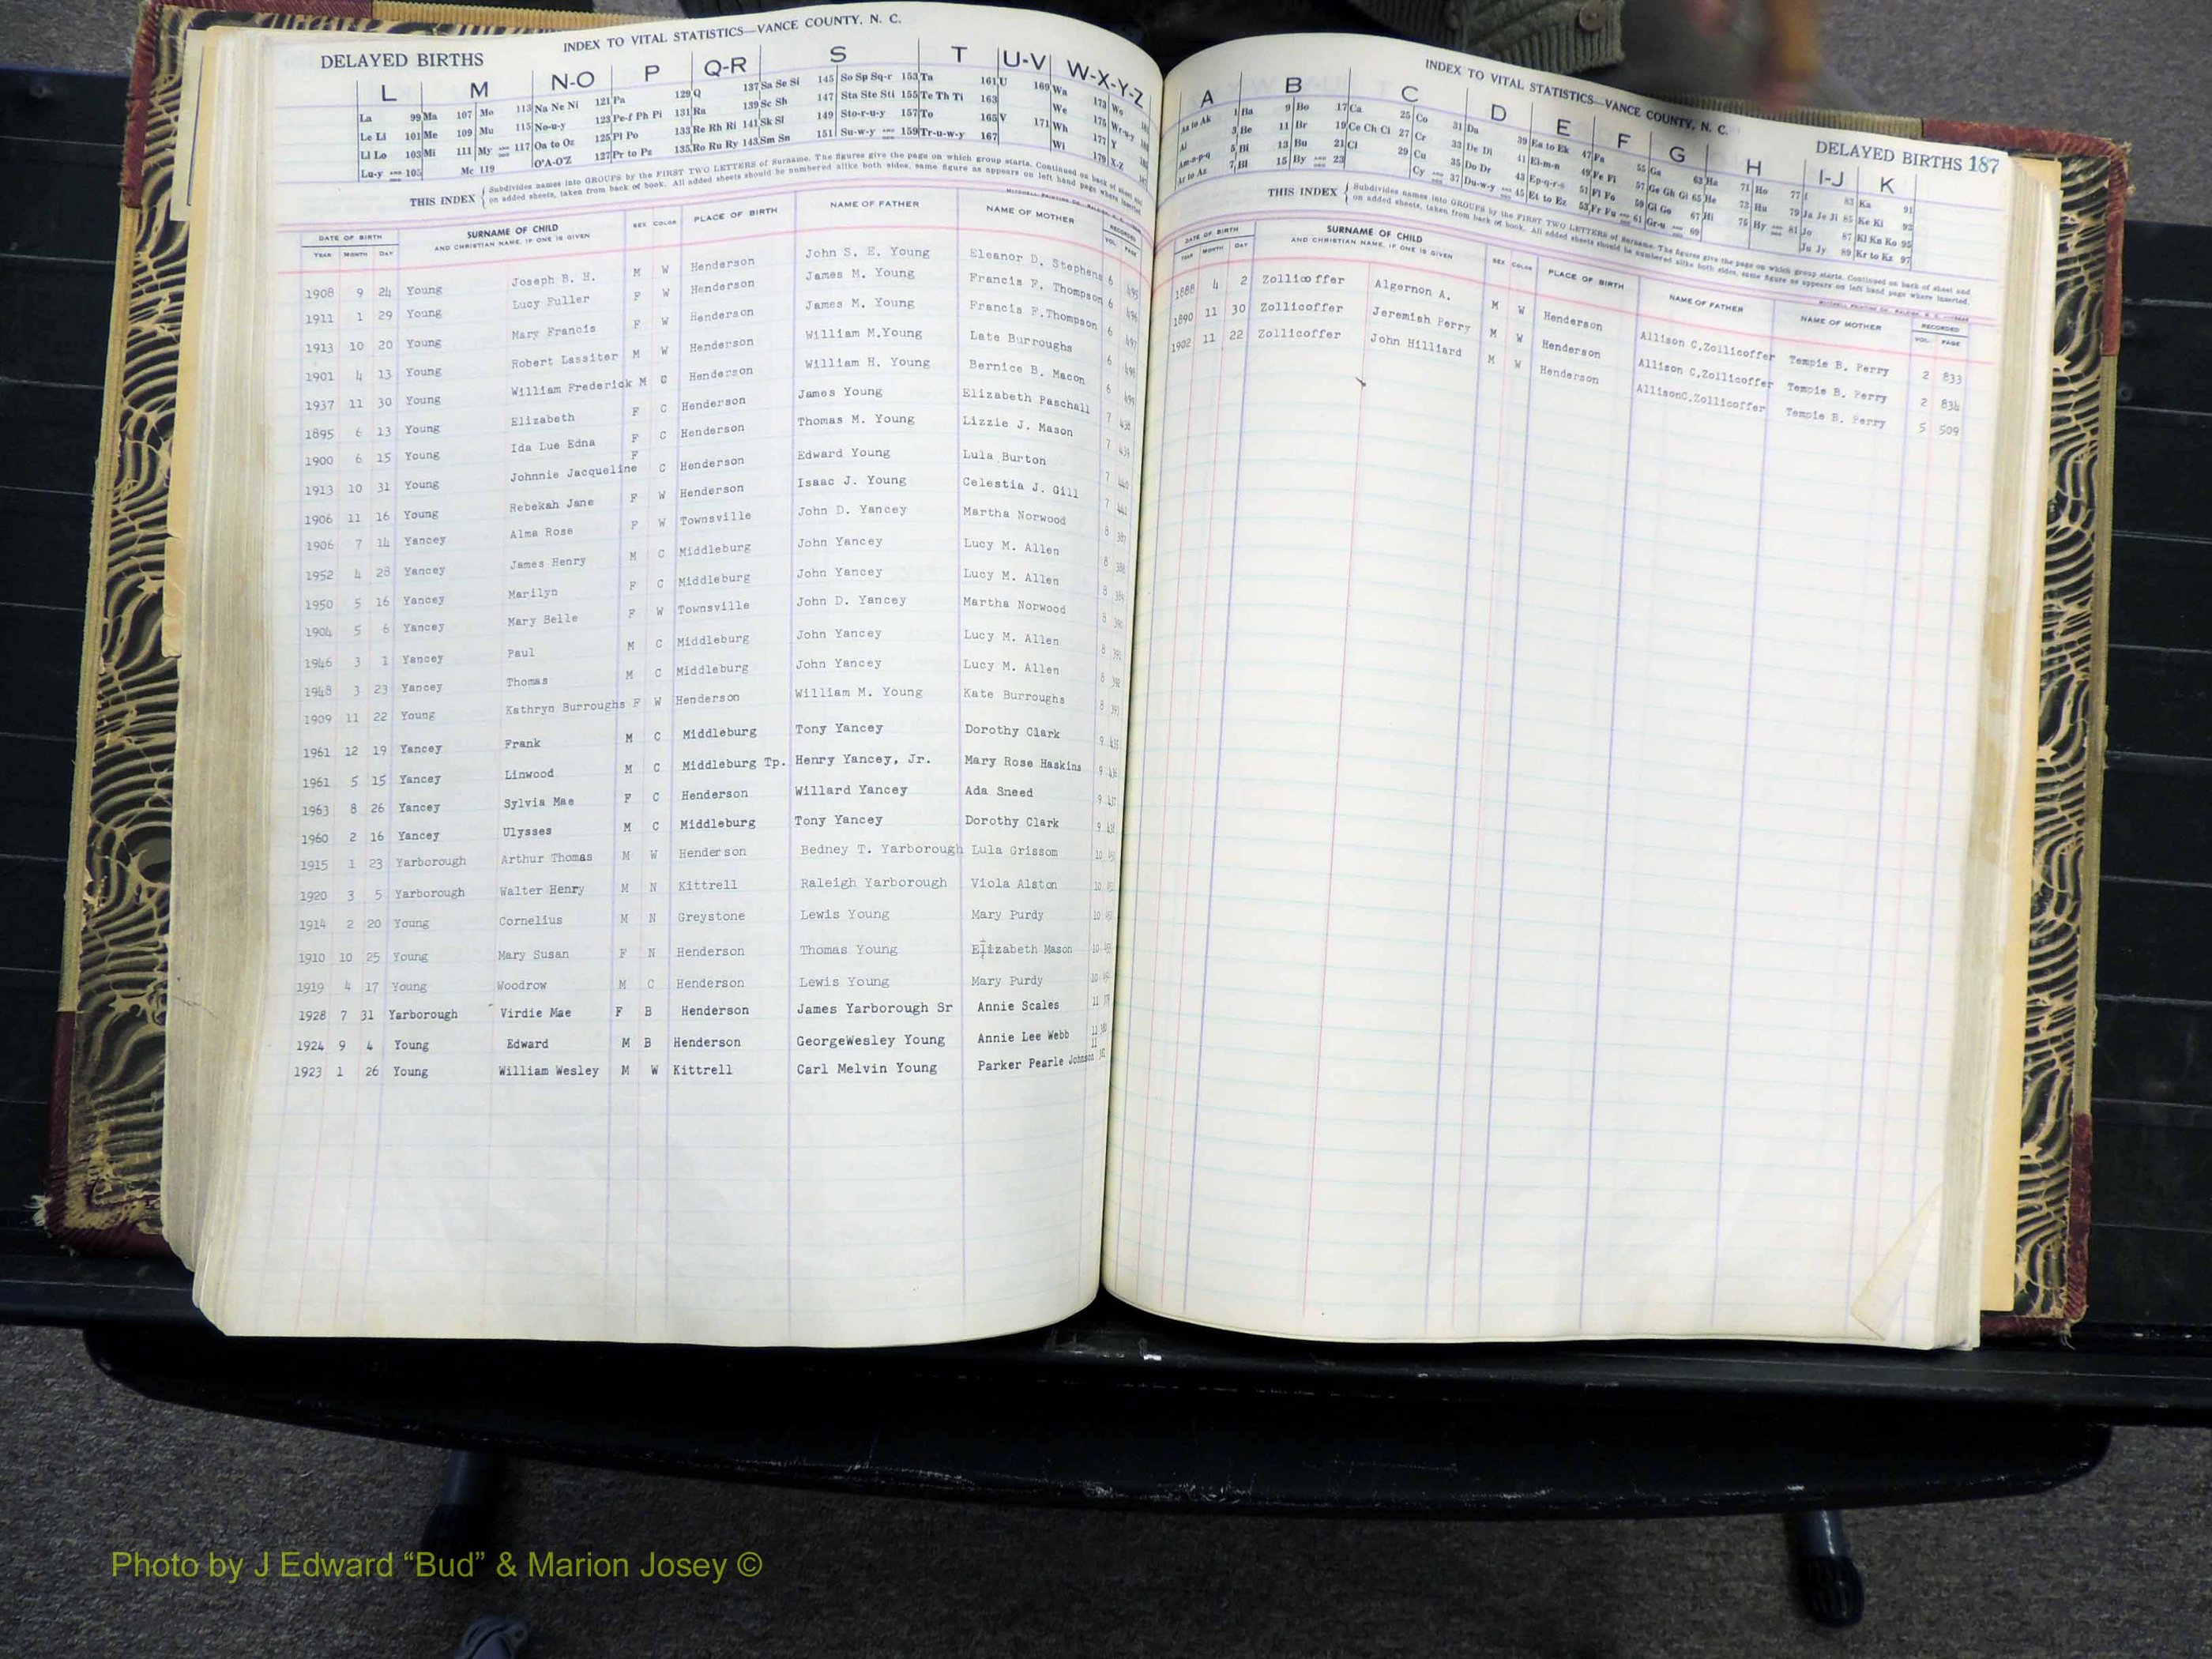 INDEX TO VITAL STATISTICS—VANCE COUNTY, N. C.
DELAYED BIRTHS
L M N-O P Q-R S T U-V W-X-Y-Z
La 99 Ma 107 Mo 113 Na Ne Ni 121 Pa 129 Q 137 Sa Se Si 145 So Sp Sq-r 153 Ta 161 U 169 Wa 173 Wo
Le Li 101 Me 109 Mu 115 No-u-y 123 Pe-f Ph Pi 131 Ra 139 Sc Sh 147 Sta Ste Sti 155 Te Th Ti 163 We 175 Wr-u-y
Ll Lo 103 Mi 111 My AND 117 Oa to Oz 125 Pl Po 133 Re Rh Ri 141 Sk Sl 149 Sto-r-u-y 157 To 165 V 171 Wh 177 Y
Lu-y AND 105 Mc 119 O'A-O'Z 127 Pr to Pz 135 Ro Ru Ry 143 Sm Sn 151 Su-w-y AND 159 Tr-u-w-y 167 Wi 179 X-Z
THIS INDEX { Subdivides names into GROUPS by the FIRST TWO LETTERS of Surname. The figures give the page on which group starts. Continued on back of sheet and
on added sheets, taken from back of book. All added sheets should be numbered alike both sides, same figure as appears on left hand page where inserted.
DATE OF BIRTH SURNAME OF CHILD SEX COLOR PLACE OF BIRTH NAME OF FATHER NAME OF MOTHER RECORDED
YEAR MONTH DAY AND CHRISTIAN NAME, IF ONE IS GIVEN VOL. PAGE
1908 9 24 Young Joseph B. H. M W Henderson John S. E. Young Eleanor D. Stephens 6 495
1911 1 29 Young Lucy Fuller F W Henderson James M. Young Francis F. Thompson 6 496
1913 10 20 Young Mary Francis F W Henderson James M. Young Francis F.Thompson 6 497
1901 4 13 Young Robert Lassiter M W Henderson William M.Young Late Burroughs 6 498
1937 11 30 Young William Frederick M C Henderson William H. Young Bernice B. Macon 6 499
1895 6 13 Young Elizabeth F C Henderson James Young Elizabeth Paschall 7 438
1900 6 15 Young Ida Lue Edna F C Henderson Thomas M. Young Lizzie J. Mason 7 439
1913 10 31 Young Johnnie Jacqueline F C Henderson Edward Young Lula Burton 7 440
1906 11 16 Young Rebekah Jane F W Henderson Isaac J. Young Celestia J. Gill 7 441
1906 7 14 Yancey Alma Rose F W Townsville John D. Yancey Martha Norwood 8 387
1952 4 28 Yancey James Henry M C Middleburg John Yancey Lucy M. Allen 8 388
1950 5 16 Yancey Marilyn F C Middleburg John Yancey Lucy M. Allen 8 389
1904 5 6 Yancey Mary Belle F W Townsville John D. Yancey Martha Norwood 8 390
1946 3 1 Yancey Paul M C Middleburg John Yancey Lucy M. Allen 8 391
1948 3 23 Yancey Thomas M C Middleburg John Yancey Lucy M. Allen 8 392
1909 11 22 Young Kathryn Burroughs F W Henderson William M. Young Kate Burroughs 8 393
1961 12 19 Yancey Frank M C Middleburg Tony Yancey Dorothy Clark 9 435
1961 5 15 Yancey Linwood M C Middleburg Tp. Henry Yancey, Jr. Mary Rose Haskins 9 436
1963 8 26 Yancey Sylvia Mae F C Henderson Willard Yancey Ada Sneed 9 437
1960 2 16 Yancey Ulysses M C Middleburg Tony Yancey Dorothy Clark 9 438
1915 1 23 Yarborough Arthur Thomas M W Henderson Bedney T. Yarborough Lula Grissom 10
1920 3 5 Yarborough Walter Henry M N Kittrell Raleigh Yarborough Viola Alston 10
1914 2 20 Young Cornelius M N Greystone Lewis Young Mary Purdy 10
1910 10 25 Young Mary Susan F N Henderson Thomas Young Elizabeth Mason 10
1919 4 17 Young Woodrow M C Henderson Lewis Young Mary Purdy 10
1928 7 31 Yarborough Virdie Mae F B Henderson James Yarborough Sr Annie Scales 11
1924 9 4 Young Edward M B Henderson GeorgeWesley Young Annie Lee Webb 11
1923 1 26 Young William Wesley M W Kittrell Carl Melvin Young Parker Pearle Johnson 11
INDEX TO VITAL STATISTICS—VANCE COUNTY, N. C.
DELAYED BIRTHS 187
A B C D E F G H I-J K
Aa to Ak 1 Ba 9 Bo 17 Ca 25 Co 31 Da 39 Ea to Ek 47 Fa 55 Ga 63 Ha 71 Ho 77 I 83 Ka 91
Al 3 Be 11 Br 19 Ce Ch Ci 27 Cr 33 De Di 41 El-m-n 49 Fe Fi 57 Ge Gh Gi 65 He 73 Hu 79 Ja Je Ji 85 Ke Ki 93
Am-n-p-q 5 Bi 13 Bu 21 Cl 29 Cu 35 Do Dr 43 Ep-q-r-s 51 Fl Fo 59 Gl Go 67 Hi 75 Hy AND 81 Jo 87 Kl Kn Ko 95
Ar to Az 7 Bl 15 By AND 23 Cy AND 37 Du-w-y AND 45 Et to Ez 53 Fr Fu AND 61 Gr-u AND 69 Ju Jy 89 Kr to Kz 97
THIS INDEX { Subdivides names into GROUPS by the FIRST TWO LETTERS of Surname. The figures give the page on which group starts. Continued on back of sheet and
on added sheets, taken from back of book. All added sheets should be numbered alike both sides, same figure as appears on left hand page where inserted.
DATE OF BIRTH SURNAME OF CHILD SEX COLOR PLACE OF BIRTH NAME OF FATHER NAME OF MOTHER RECORDED
YEAR MONTH DAY AND CHRISTIAN NAME, IF ONE IS GIVEN VOL. PAGE
1888 4 2 Zollicoffer Algernon A. M W Henderson Allison C.Zollicoffer Tempie B. Perry 2 833
1890 11 30 Zollicoffer Jeremiah Perry M W Henderson Allison C.Zollicoffer Tempie B. Perry 2 834
1902 11 22 Zollicoffer John Hilliard M W Henderson AllisonC.Zollicoffer Tempie B. Perry 5 509
Photo by J Edward “Bud” & Marion Josey ©